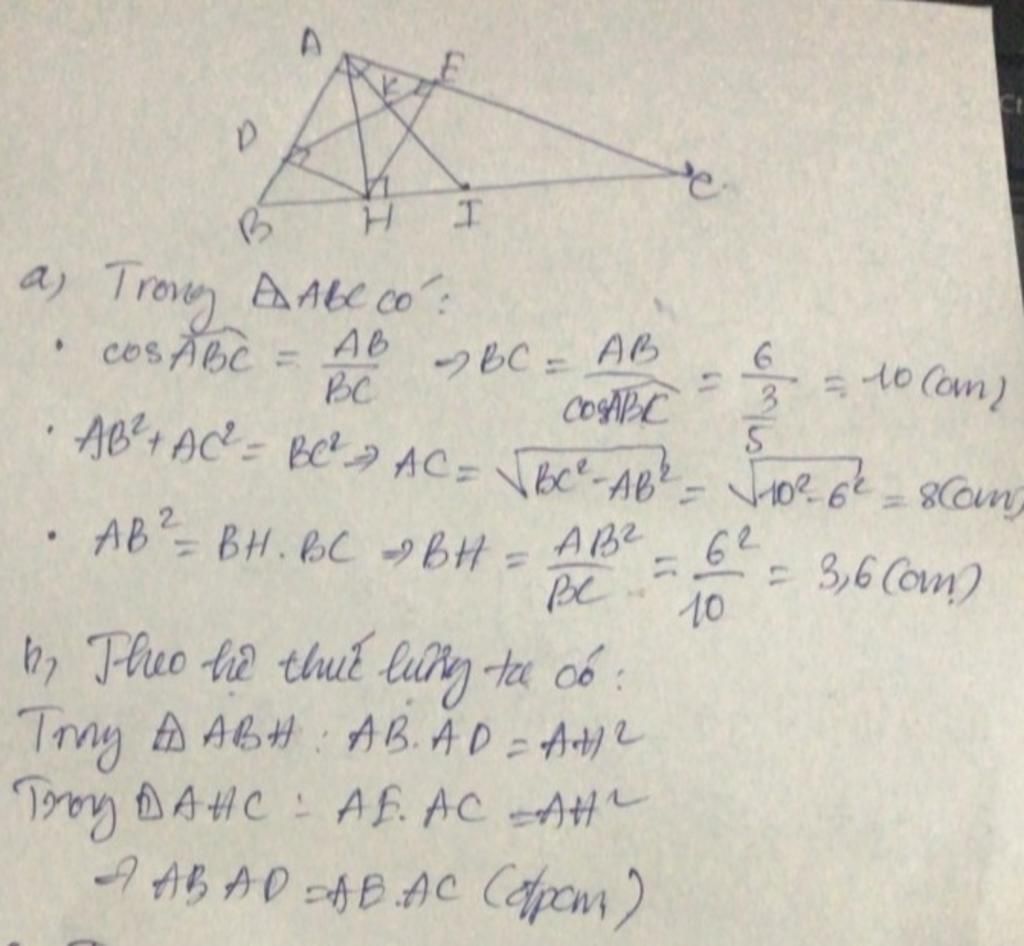 A
E
K
D
B
H
I
C
a, Trong △ABC có:
• cos ABC = AB/BC → BC = AB/cos ABC = 6/(3/5) = 10 (cm)
• AB² + AC² = BC² ⇒ AC = √(BC² - AB²) = √(10² - 6²) = 8 (cm)
• AB² = BH . BC ⇒ BH = AB²/BC = 6²/10 = 3,6 (cm)
b, Theo hệ thức lượng ta có:
Trong △ABH : AB. AD = AH²
Trong △AHC : AE. AC = AH²
⇒ AB AD = AB.AC (đpcm)